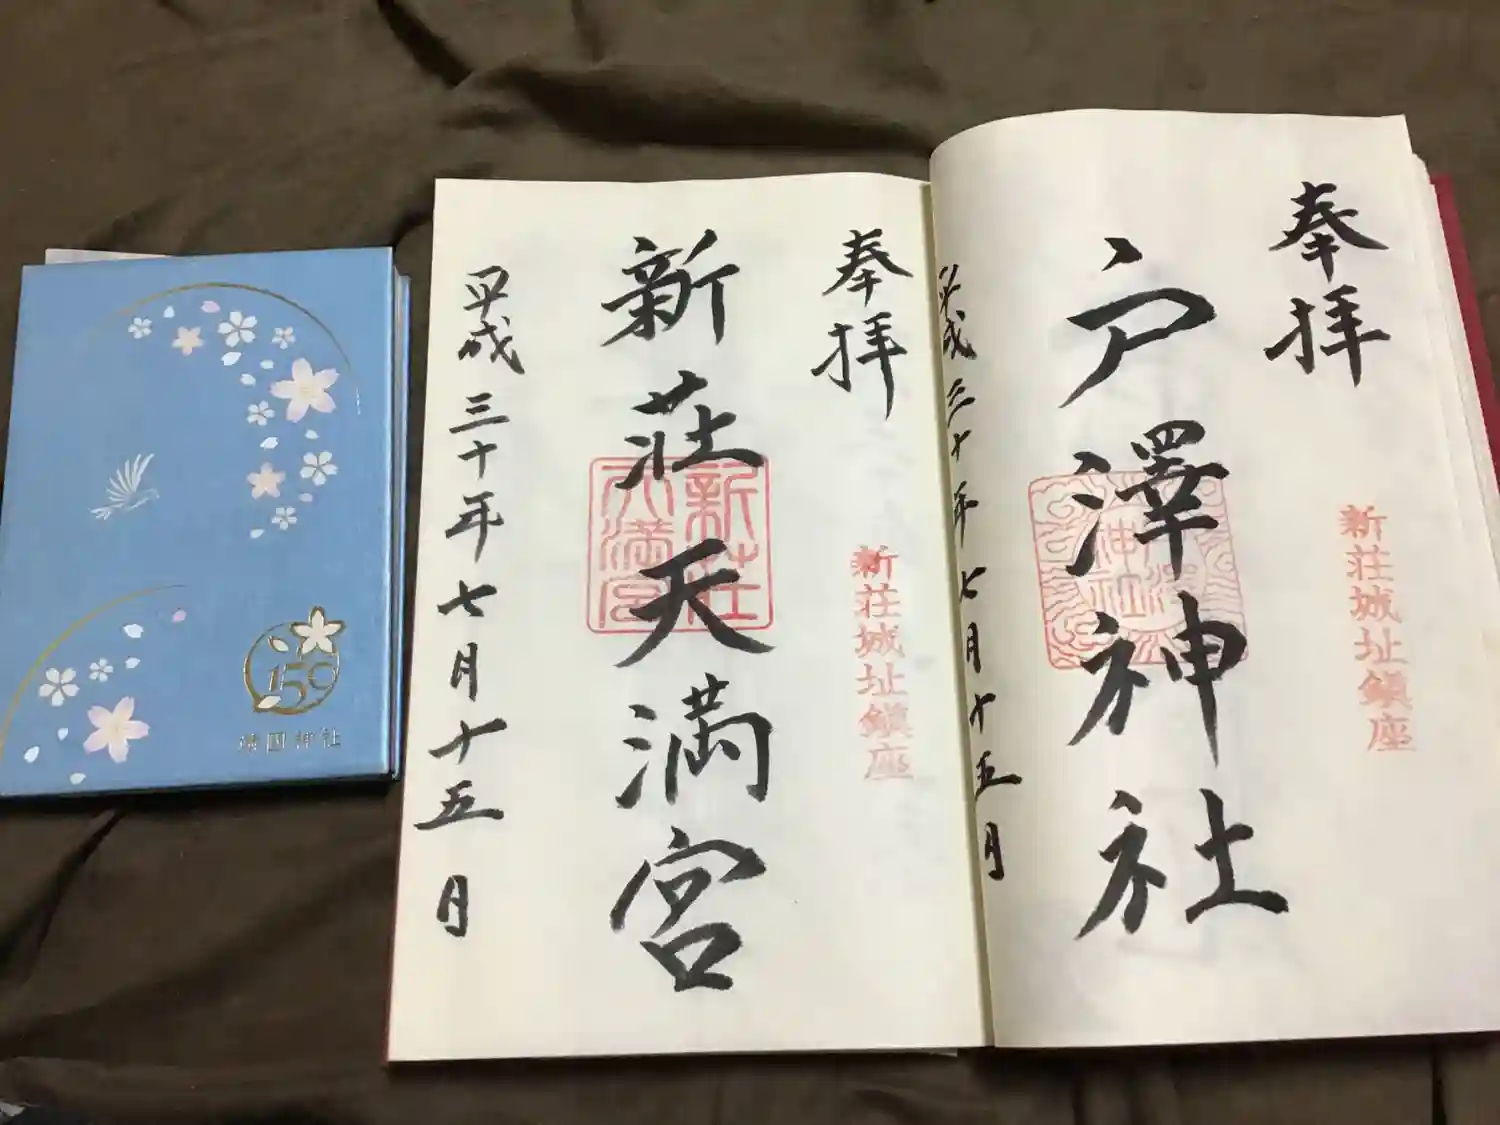 奉拝
新荘城址鎮座
戸澤神社
戸澤神社
平成三十年七月十五日
奉拝
新荘城址鎮座
新荘天満宮
新荘
天満宮
平成三十年七月十五日
150
靖國神社